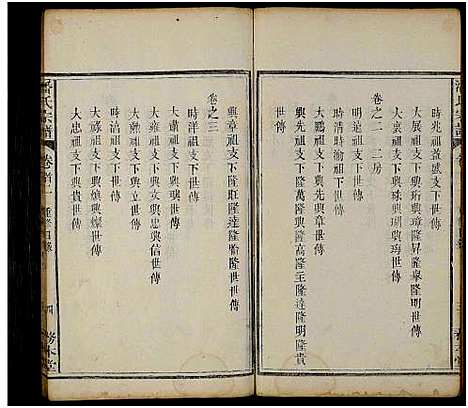 時兆祖益盛支下世傳
大展祖支下興珩興璋興昇興皋興明世傳
大宗祖支下興珠興璵興珻世傳
明逵祖支下世傳
卷之二 二房
時清時瑜祖支下世傳
大鵬祖支下興先興章世傳
興先祖支下隆萬隆興隆高隆玉世傳
興章祖支下隆旺隆達隆喻隆世世傳
卷之三
時洋祖支下世傳
大蕭祖支下世傳
大雍祖支下興文興忠興信世傳
大彝祖支下興立世傳
時浩祖支下世傳
大祿祖支下興煥興燦世傳
大忠祖支下興貴世傳
潘氏宗譜
卷首一
重修目錄
四
務本堂